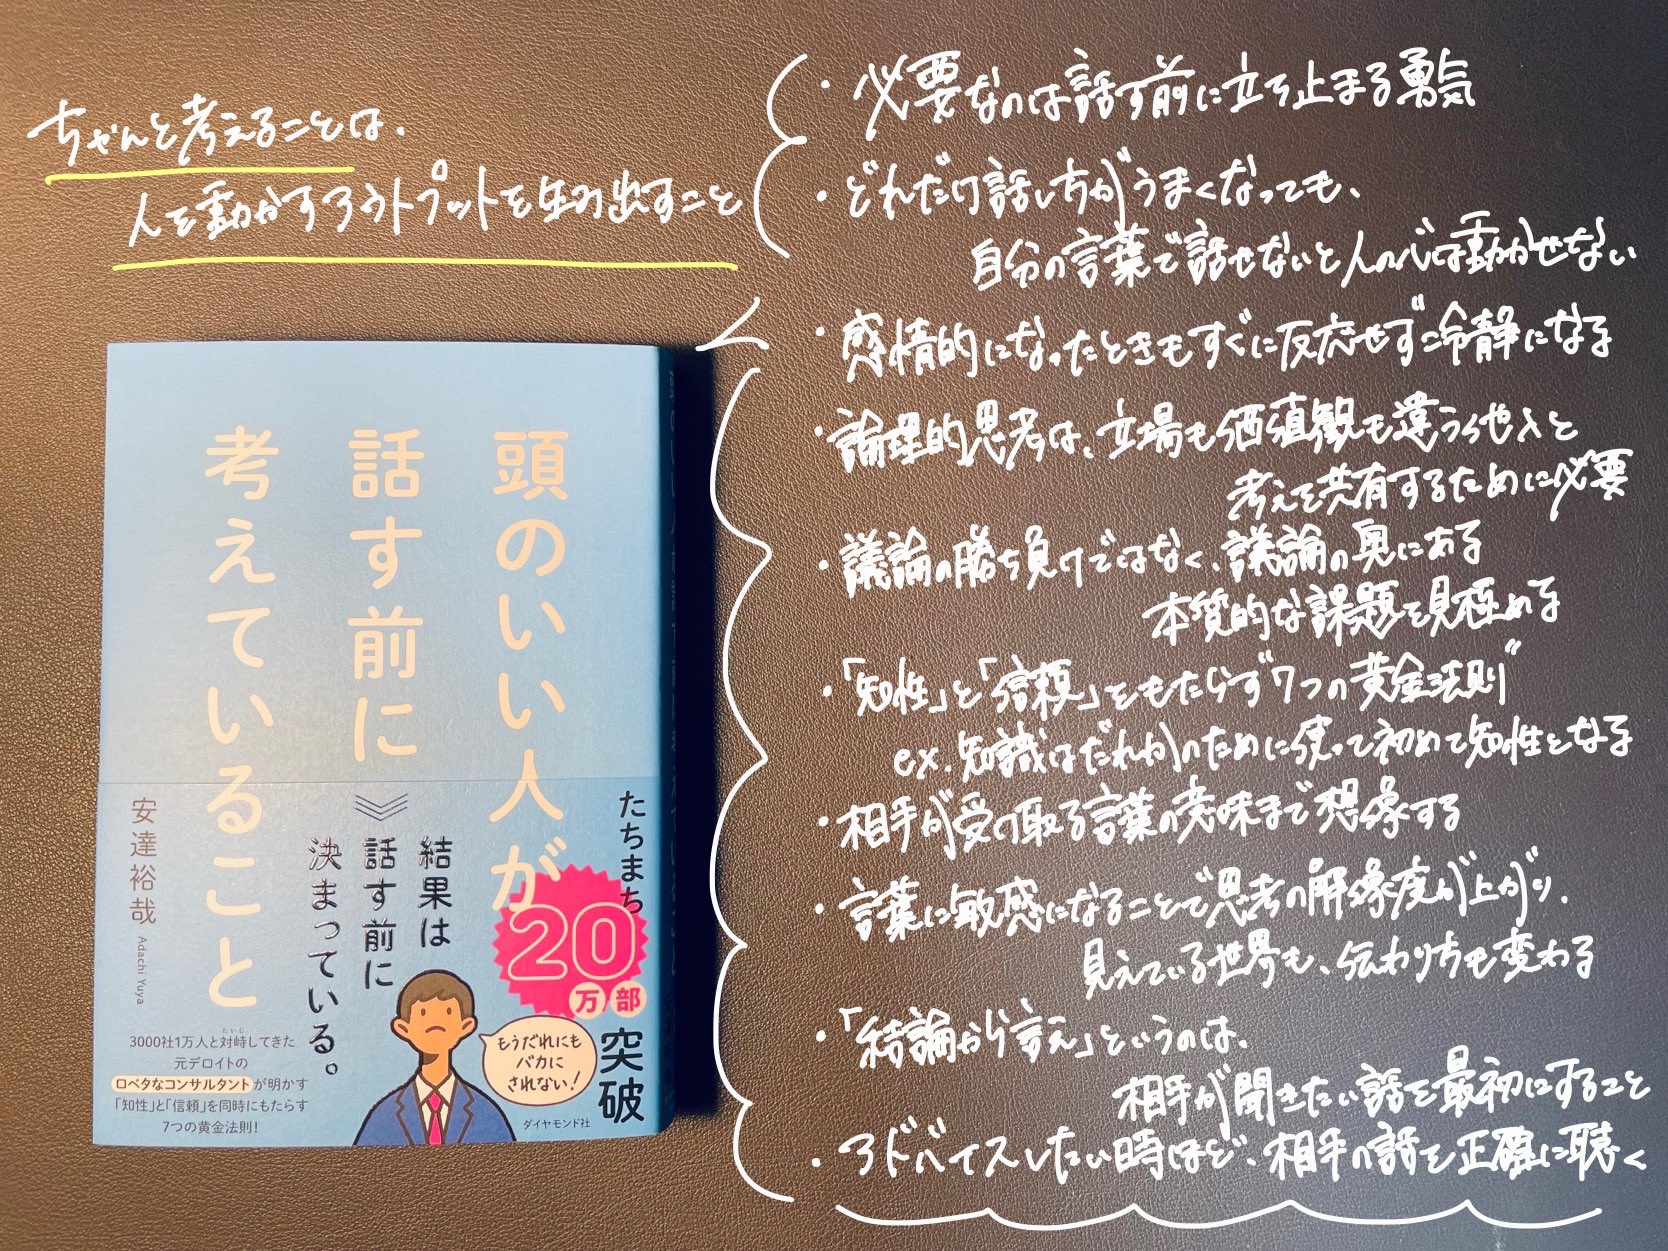 ちゃんと考えることは、
人を動かすアウトプットを生み出すこと
・必要なのは話す前に立ち止まる勇気
・どれだけ話し方がうまくなっても、
自分の言葉で話せないと人の心は動かせない
・感情的になったときもすぐに反応せず冷静になる
・論理的思考は、立場も価値観も違う他人と
考えを共有するために必要
・議論の勝ち負けではなく、議論の奥にある
本質的な課題を見極める
・「知性」と「信頼」をもたらす"7つの黄金法則"
ex. 知識はだれかのために使って初めて知性となる
・相手が受け取る言葉の意味まで想像する
・言葉に敏感になることで思考の解像度が上がり、
見えている世界も、伝わり方も変わる
・「結論から言え」というのは、
相手が聞きたい話を最初にすること
・アドバイスしたい時ほど、相手の話を正確に聴く
頭のいい人が
話す前に
考えていること
安達裕哉 Adachi Yuya
たちまち
20
万部
突破
結果は
話す前に
決まっている。
もうだれにも
バカに
されない!
3000社1万人と対峙してきた
たいじ
元デロイトの
ロベタなコンサルタントが明かす
「知性」と「信頼」を同時にもたらす
7つの黄金法則!
ダイヤモンド社